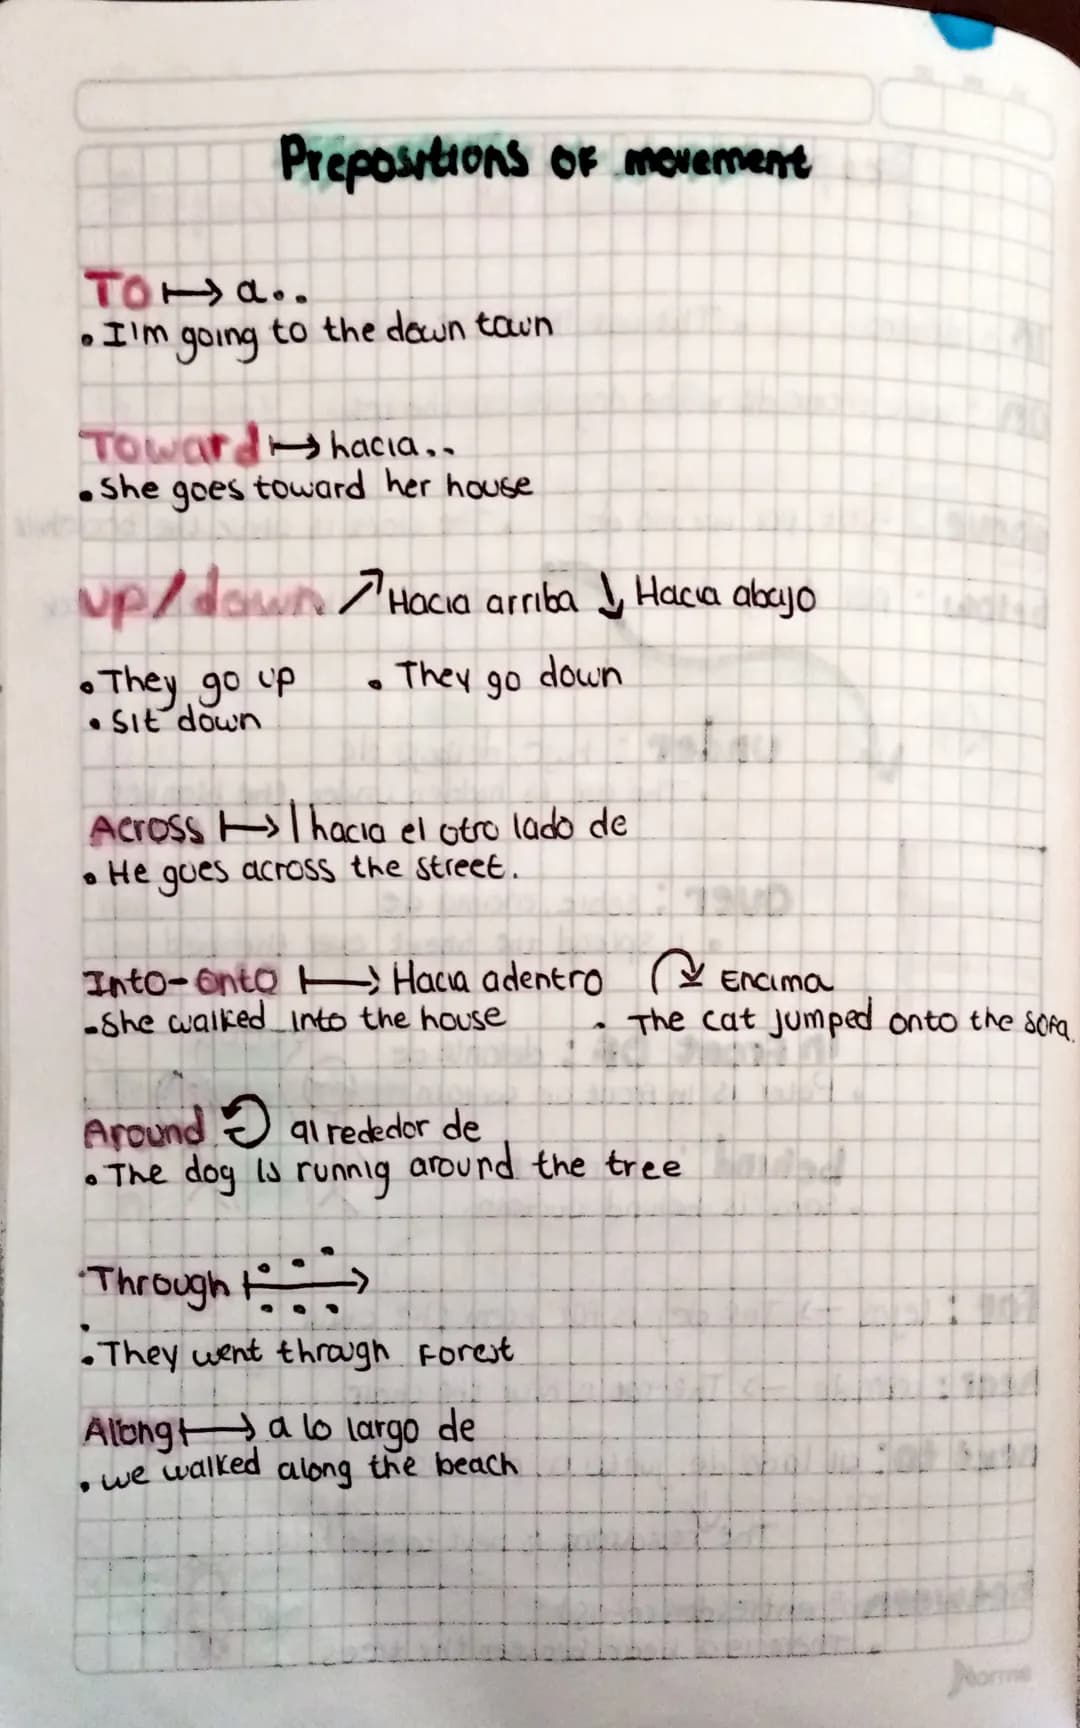 Prepositions of movement
To ↦ a..
• I'm going to the down town
Toward ↦ hacia..
• She goes toward her house
up/down ↗ Hacia arriba ↓ Hacia abajo
• They go up • They go down
• Sit down
Across ↦ | hacia el otro lado de
• He goes across the street.
Into-onto ↦ Hacia adentro ↷ Encima
• She walked into the house • The cat jumped onto the sofa.
Around ↺ alrededor de
• The dog is runnig around the tree
Through ↦
• They went through forest
Along ↦ a lo largo de
• we walked along the beach
Norma